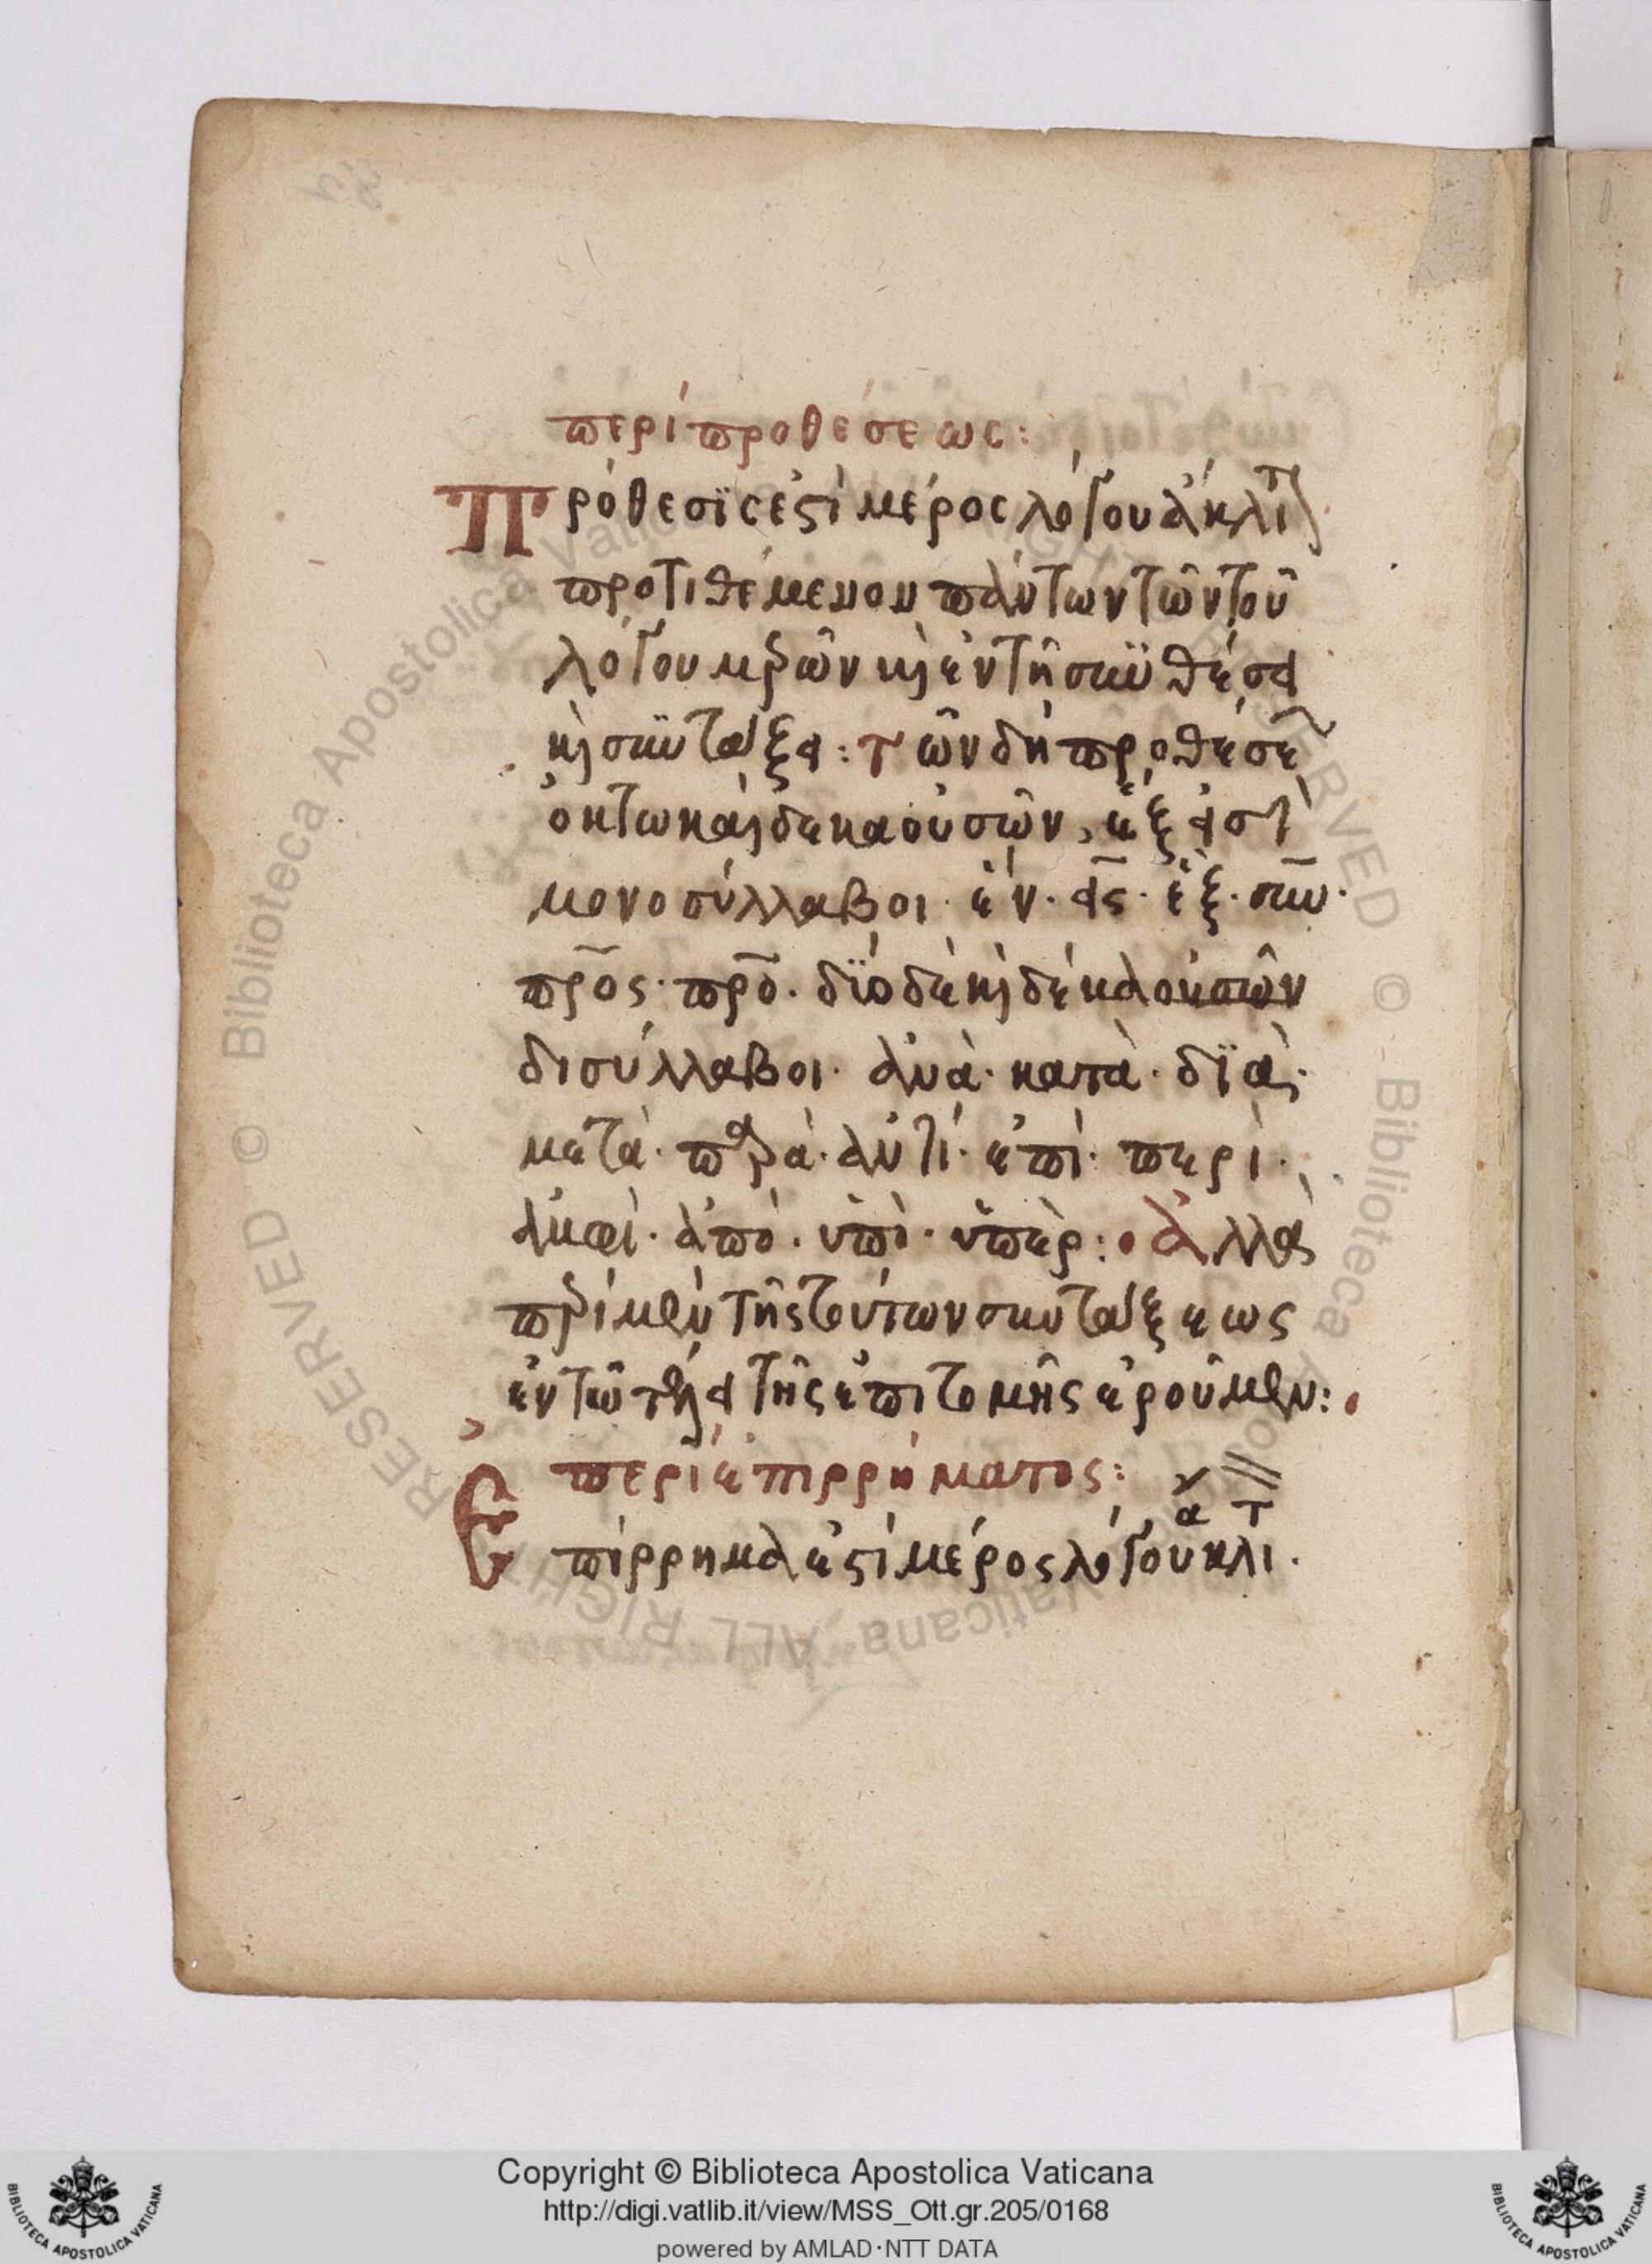 περὶ προθέσεως:
Πρόθεσϊς ἐστὶ μέρος λόγου ἄκλιτ
προτιθέμενον πάντων τῶν τοῦ
λόγου μερῶν καὶ ἐν τῆ συνθέσει
καὶ συντάξει: τῶν δὴ προθέσε
ὀκτωκαίδεκα οὐσῶν, ἓξ εἰσὶ
μονοσύλλαβοι· ἐν· εἰς· ἐξ· σὺν·
πρὸς· πρὸ· δϊόδὲ καὶ δέκα οὐσῶν
δισύλλαβοι· ἀνὰ· κατὰ· δϊὰ·
μετὰ· παρὰ· ἀντὶ· ἐπὶ· περὶ·
ἀμφὶ· ἀπὸ· ὑπὸ· ὑπὲρ: ἀλλὰ
περὶ μὲν τῆς τούτων συντάξεως
ἐν τῶ τέλει τῆς ἐπιτομῆς ἐροῦμεν:
περὶ ἐπιρρήματος:
Ἐπίρρημα ἐστὶ μέρος λόγου ἄκλιτ·
Copyright © Biblioteca Apostolica Vaticana
http://digi.vatlib.it/view/MSS_Ott.gr.205/0168
powered by AMLAD·NTT DATA
BIBLIOTECA APOSTOLICA VATICANA
BIBLIOTECA APOSTOLICA VATICANA